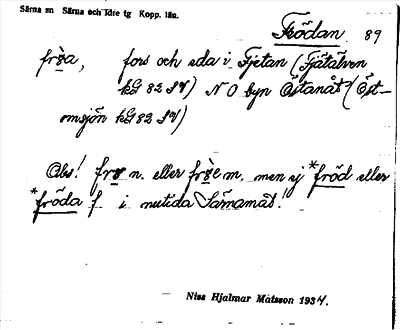 Särna sn Särna och Idre tg Kopp. län.
Frödan 89
fròa, fors och eda i Fjetan (Fjätälven
kG 82 SV) N O byn Östanåt (Öst-
omsjön kG 82 SV)
Obs! frø n. eller fròe m. men ej *fröd eller
*fröda f. i nutida Särnamål!
Niss Hjalmar Matsson 1934.